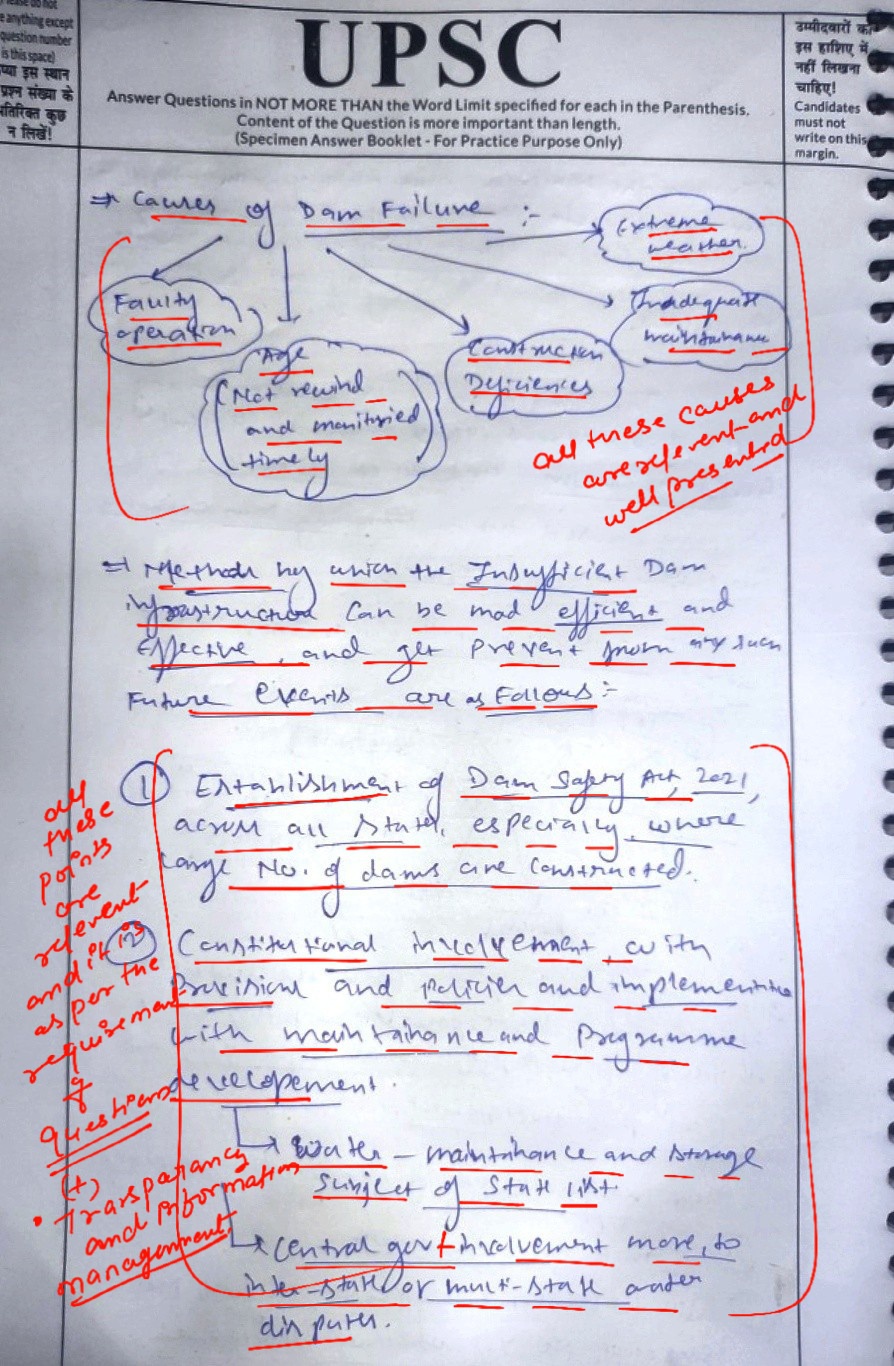 Please do not
e anything except
question number
is this space)
प्या इस स्थान
प्रश्न संख्या के
तिरिक्त कुछ
न लिखें!
UPSC
Answer Questions in NOT MORE THAN the Word Limit specified for each in the Parenthesis.
Content of the Question is more important than length.
(Specimen Answer Booklet - For Practice Purpose Only)
उम्मीदवारों को
इस हाशिए में
नहीं लिखना
चाहिए!
Candidates
must not
write on this
margin.
⇒ Causes of Dam Failure :-
Extreme
weather.
Faulty
operation
Age
(Not rewind
and monitoried
timely
Construction
Deficiences
Inadequate
maintainance
all these causes
are relevent and
well presented
⇒ Methods by which the Insufficient Dam
infrastruction can be mad efficient and
Effective, and get prevent from any such
Future events are as Follows:-
① Establishment of Dam Safety Act, 2021,
across all States, especially, where
large No. of dams are constructed.
② Constitutional involvement, with
Provisions and policies and implementation
with maintainance and Programme
developement.
↳ Water - maintainance and storage
subject of State list.
↳ Central govt involvement more, to
inter-state or multi-state water
disputes.
all
these
points
are
relevent
and it is
as per the
requirement
of
questions
(+)
• Transparancy
and information
management